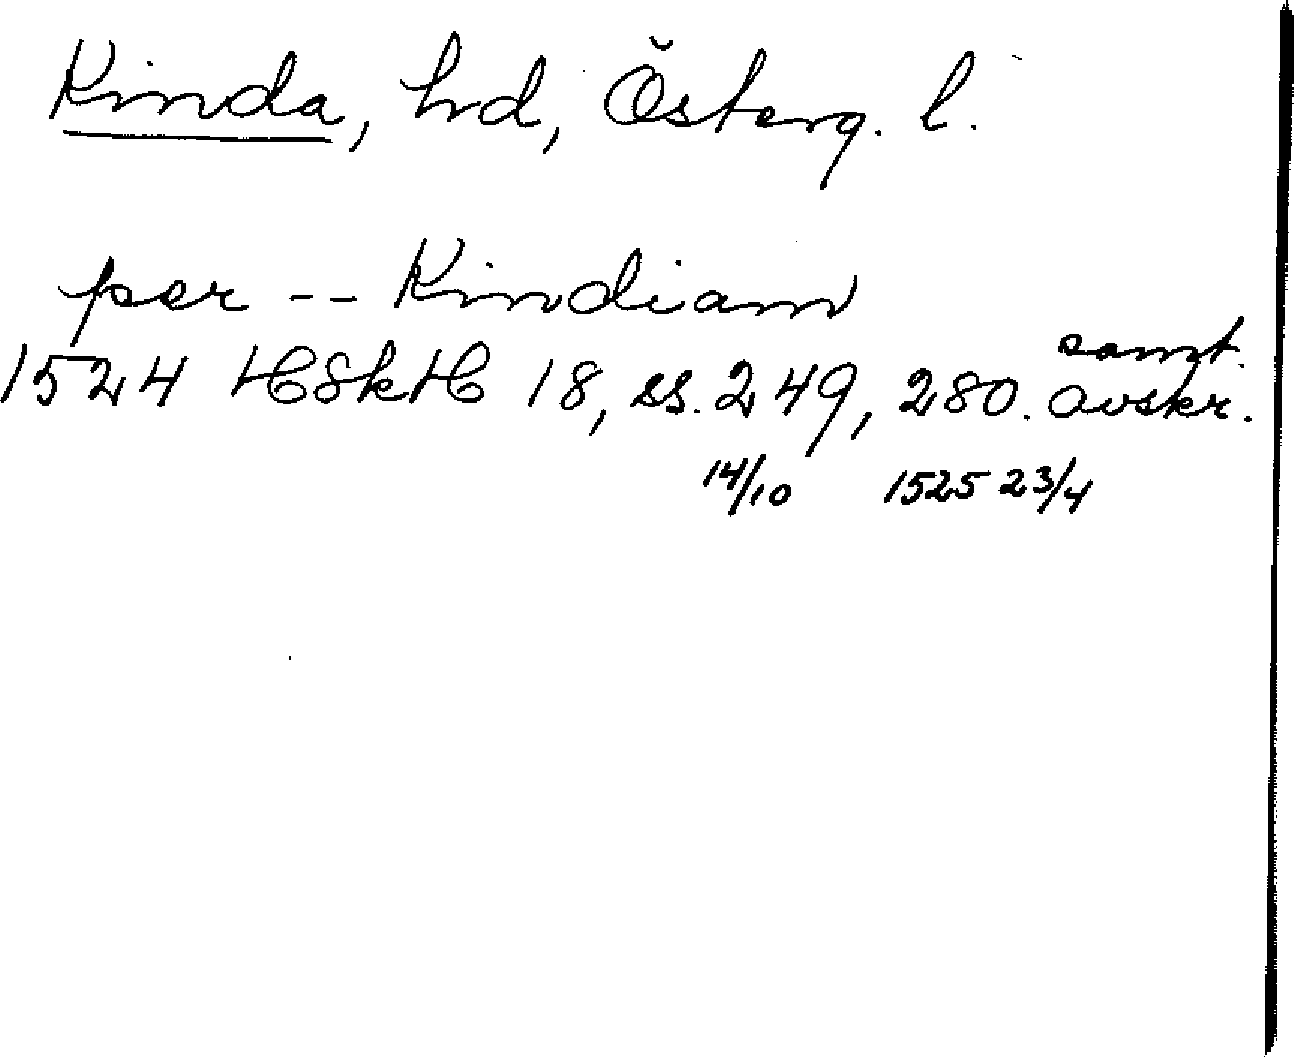 Kinda, hd, Österg. l.
per -- Kindiam
samt.
1524 HSkH 18, ss. 249, 280. avskr.
14/10 1525 23/4